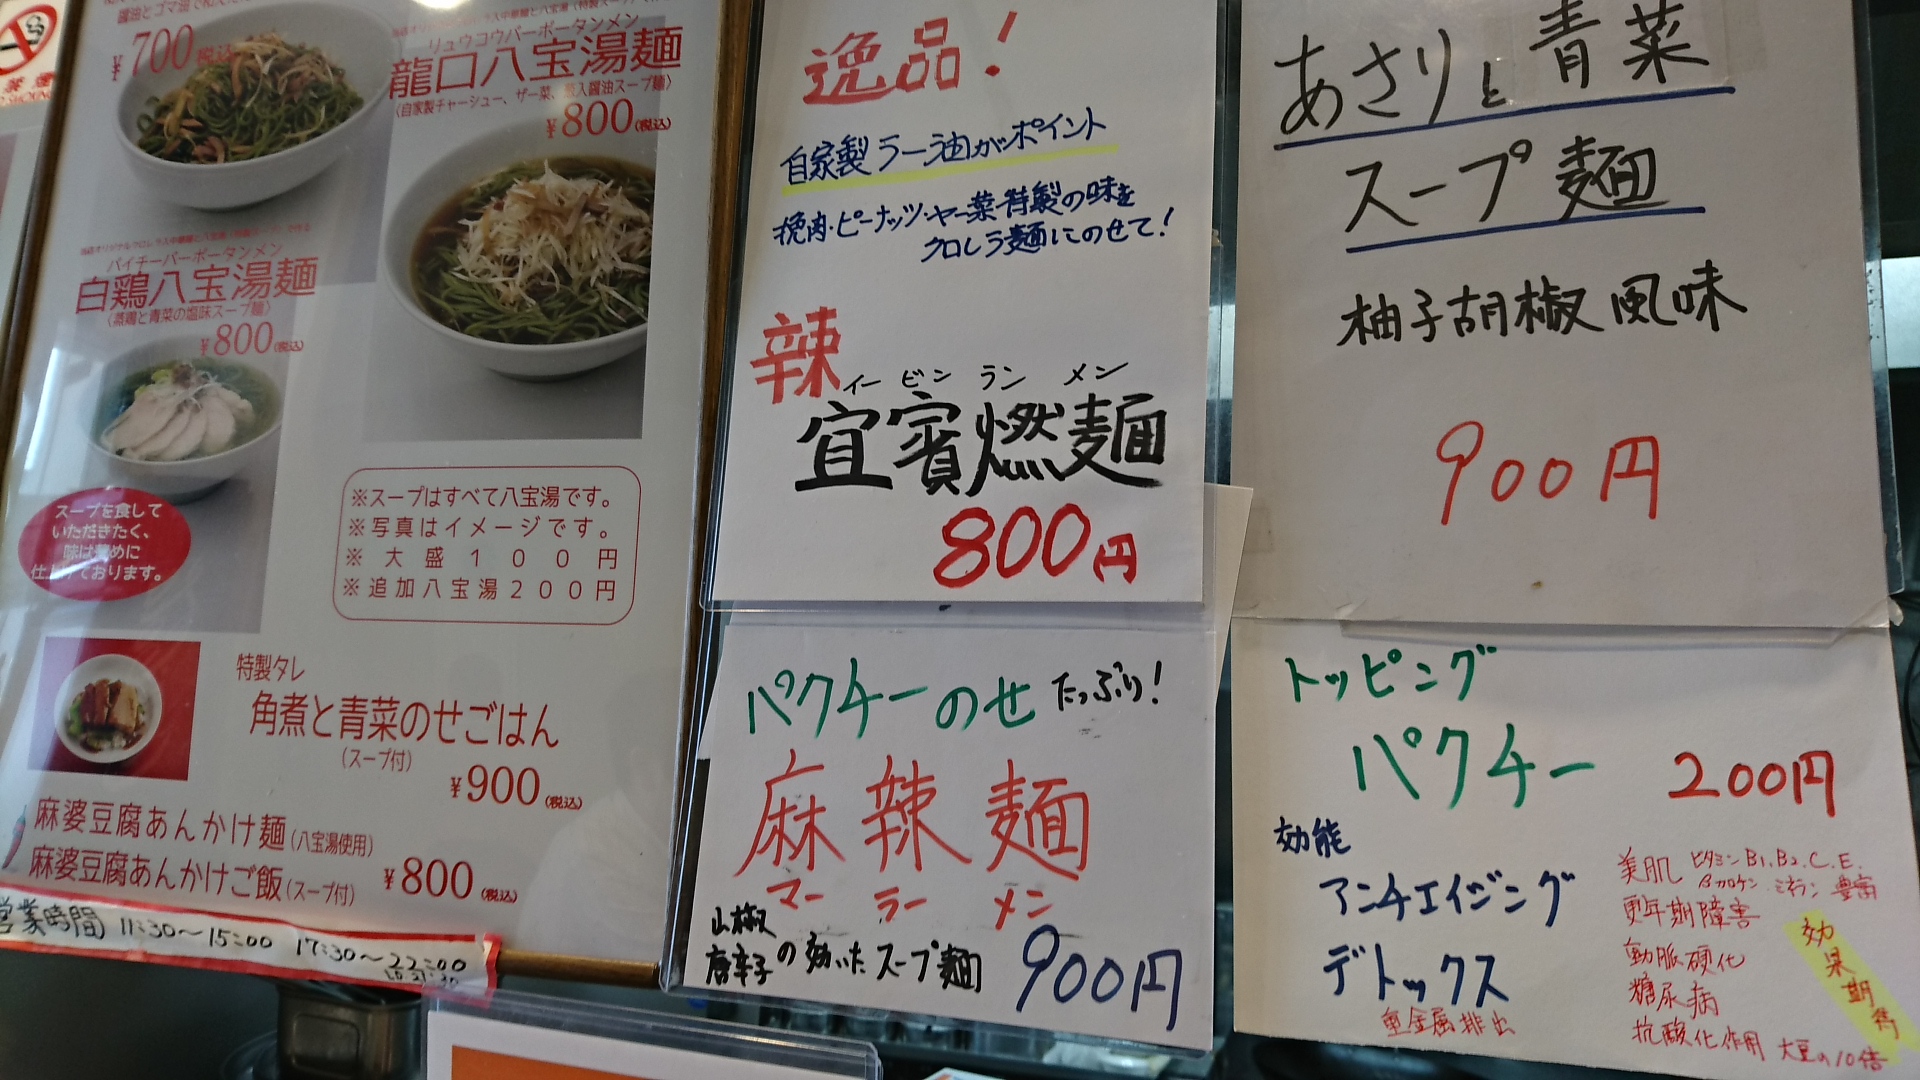 醤油とゴマ油で和えた
¥700 税込
リュウコウパーポータンメン
龍口八宝湯麺
〈自家製チャーシュー、ザー菜、葱入醤油スープ麺〉
¥800(税込)
パイチーパーポータンメン
白鶏八宝湯麺
〈蒸鶏と青菜の塩味スープ麺〉
¥800(税込)
スープを食して
いただきたく、
味は薄めに
仕上げております。
※スープはすべて八宝湯です。
※写真はイメージです。
※大盛100円
※追加八宝湯200円
特製タレ
角煮と青菜のせごはん
(スープ付)
¥900(税込)
麻婆豆腐あんかけ麺(八宝湯使用)
麻婆豆腐あんかけご飯(スープ付)
¥800(税込)
営業時間 11:30～15:00 17:30～22:00
逸品!
自家製ラー油がポイント
挽肉・ピーナッツ・ヤー菜・特製の味を
クロレラ麺にのせて!
辣
イービンランメン
宜賓燃麺
800円
パクチーのせ たっぷり!
麻辣麺
マーラーメン
山椒
唐辛子の効いたスープ麺
900円
あさりと青菜
スープ麺
柚子胡椒風味
900円
トッピング
パクチー 200円
効能
アンチエイジング
デトックス
重金属排出
美肌 ビタミンB1.B2.C.E.
βカロチン.ミネラン豊富
更年期障害
動脈硬化
糖尿病
抗酸化作用 大豆の10倍
効果期待